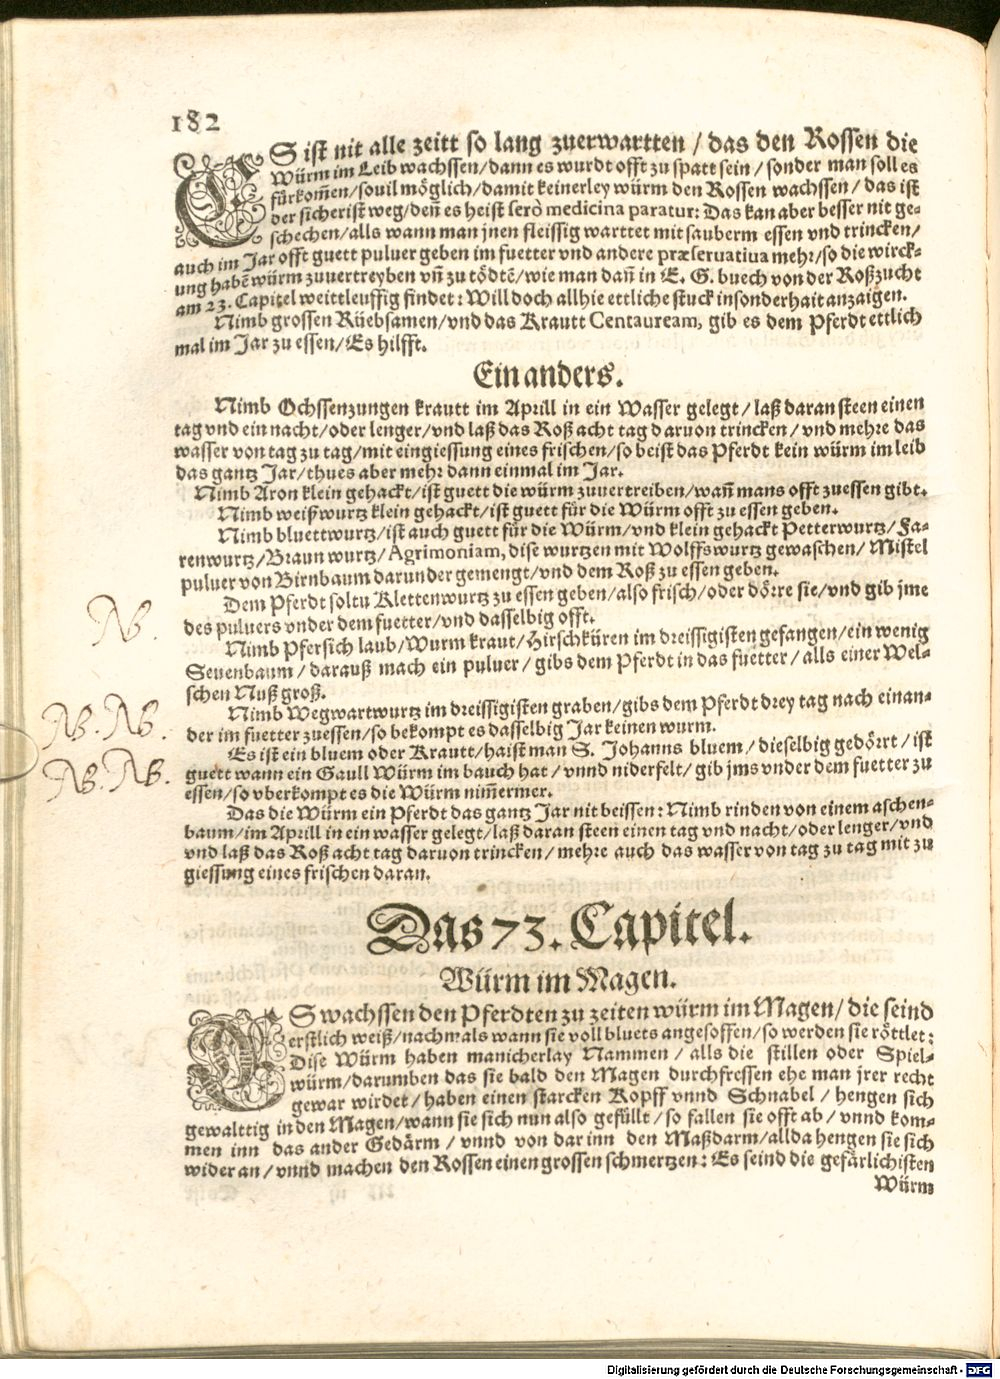 182
ES ist nit alle zeitt so lang zuerwartten / das den Rossen die
Würm im Leib wachssen/dann es wurdt offt zu spatt sein / sonder man soll es
fürkom̄en/souil möglich/damit keinerley würm den Rossen wachssen / das ist
der sicherist weg/den̄ es heist serò medicina paratur: Das kan aber besser nit ge-
schechen/alls wann man jnen fleissig warttet mit sauberm essen vnd trincken/
auch im Jar offt guett puluer geben im fuetter vnd andere præseruatiua mehr/so die wirck-
ung habē würm zuuertreyben vn̄ zu tödtē/wie man dan̄ in E. G. buech von der Roßzucht
am 23. Capitel weittleuffig findet: Will doch allhie ettliche stuck insonderhait anzaigen.
Nimb grossen Rüebsamen/vnd das Krautt Centauream, gib es dem Pferdt ettlich
mal im Jar zu essen/Es hilfft.
Ein anders.
Nimb Ochssenzungen krautt im Aprill in ein Wasser gelegt/laß daran steen einen
tag vnd ein nacht/oder lenger/vnd laß das Roß acht tag daruon trincken/vnd mehre das
wasser von tag zu tag/mit eingiessung eines frischen/so beist das Pferdt kein würm im leib
das gantz Jar/thues aber mehr dann einmal im Jar.
Nimb Aron klein gehackt/ist guett die würm zuuertreiben/wan̄ mans offt zuessen gibt.
Nimb weißwurtz klein gehackt/ist guett für die Würm offt zu essen geben.
Nimb bluettwurtz/ist auch guett für die Würm/vnd klein gehackt Petterwurtz/Fa-
renwurtz/Braun wurtz/Agrimoniam, dise wurtzen mit Wolffswurtz gewaschen/Mistel
puluer von Birnbaum darunder gemengt/vnd dem Roß zu essen geben.
Dem Pferdt soltu Klettenwurtz zu essen geben/also frisch/oder dörre sie/vnd gib jme
des puluers vnder dem fuetter/vnd dasselbig offt.
NB.
Nimb Pfersich laub/Wurm kraut/Hirschküren im dreissigisten gefangen/ein wenig
Seuenbaum / darauß mach ein puluer / gibs dem Pferdt in das fuetter / alls einer Wel-
schen Nuß groß.
NB. NB.
Nimb Wegwartwurtz im dreissigisten graben/gibs dem Pferdt drey tag nach einan-
der im fuetter zuessen/so bekompt es dasselbig Jar keinen wurm.
NB. NB.
Es ist ein bluem oder Krautt/haist man S. Johanns bluem/dieselbig gedörrt/ist
guett wann ein Gaull Würm im bauch hat/vnnd niderfelt/gib jms vnder dem fuetter zu
essen/so vberkompt es die Würm nim̄ermer.
Das die Würm ein Pferdt das gantz Jar nit beissen: Nimb rinden von einem aschen-
baum/im Aprill in ein wasser gelegt/laß daran steen einen tag vnd nacht/oder lenger/vnd
vnd laß das Roß acht tag daruon trincken/mehre auch das wasser von tag zu tag mit zu
giessung eines frischen daran.
Das 73. Capitel.
Würm im Magen.
ES wachssen den Pferdten zu zeiten würm im Magen/die seind
erstlich weiß/nachmals wann sie voll bluets angesoffen/so werden sie röttlet:
Dise Würm haben manicherlay Nammen / alls die stillen oder Spiel-
würm/darumben das sie bald den Magen durchfressen ehe man jrer recht
gewar wirdet/haben einen starcken Kopff vnnd Schnabel/hengen sich
gewalttig in den Magen/wann sie sich nun also gefüllt/so fallen sie offt ab/vnnd kom-
men inn das ander Gedärm / vnnd von dar inn den Maßdarm/allda hengen sie sich
wider an/vnnd machen den Rossen einen grossen schmertzen: Es seind die gefärlichisten
Würm
Digitalisierung gefördert durch die Deutsche Forschungsgemeinschaft - DFG